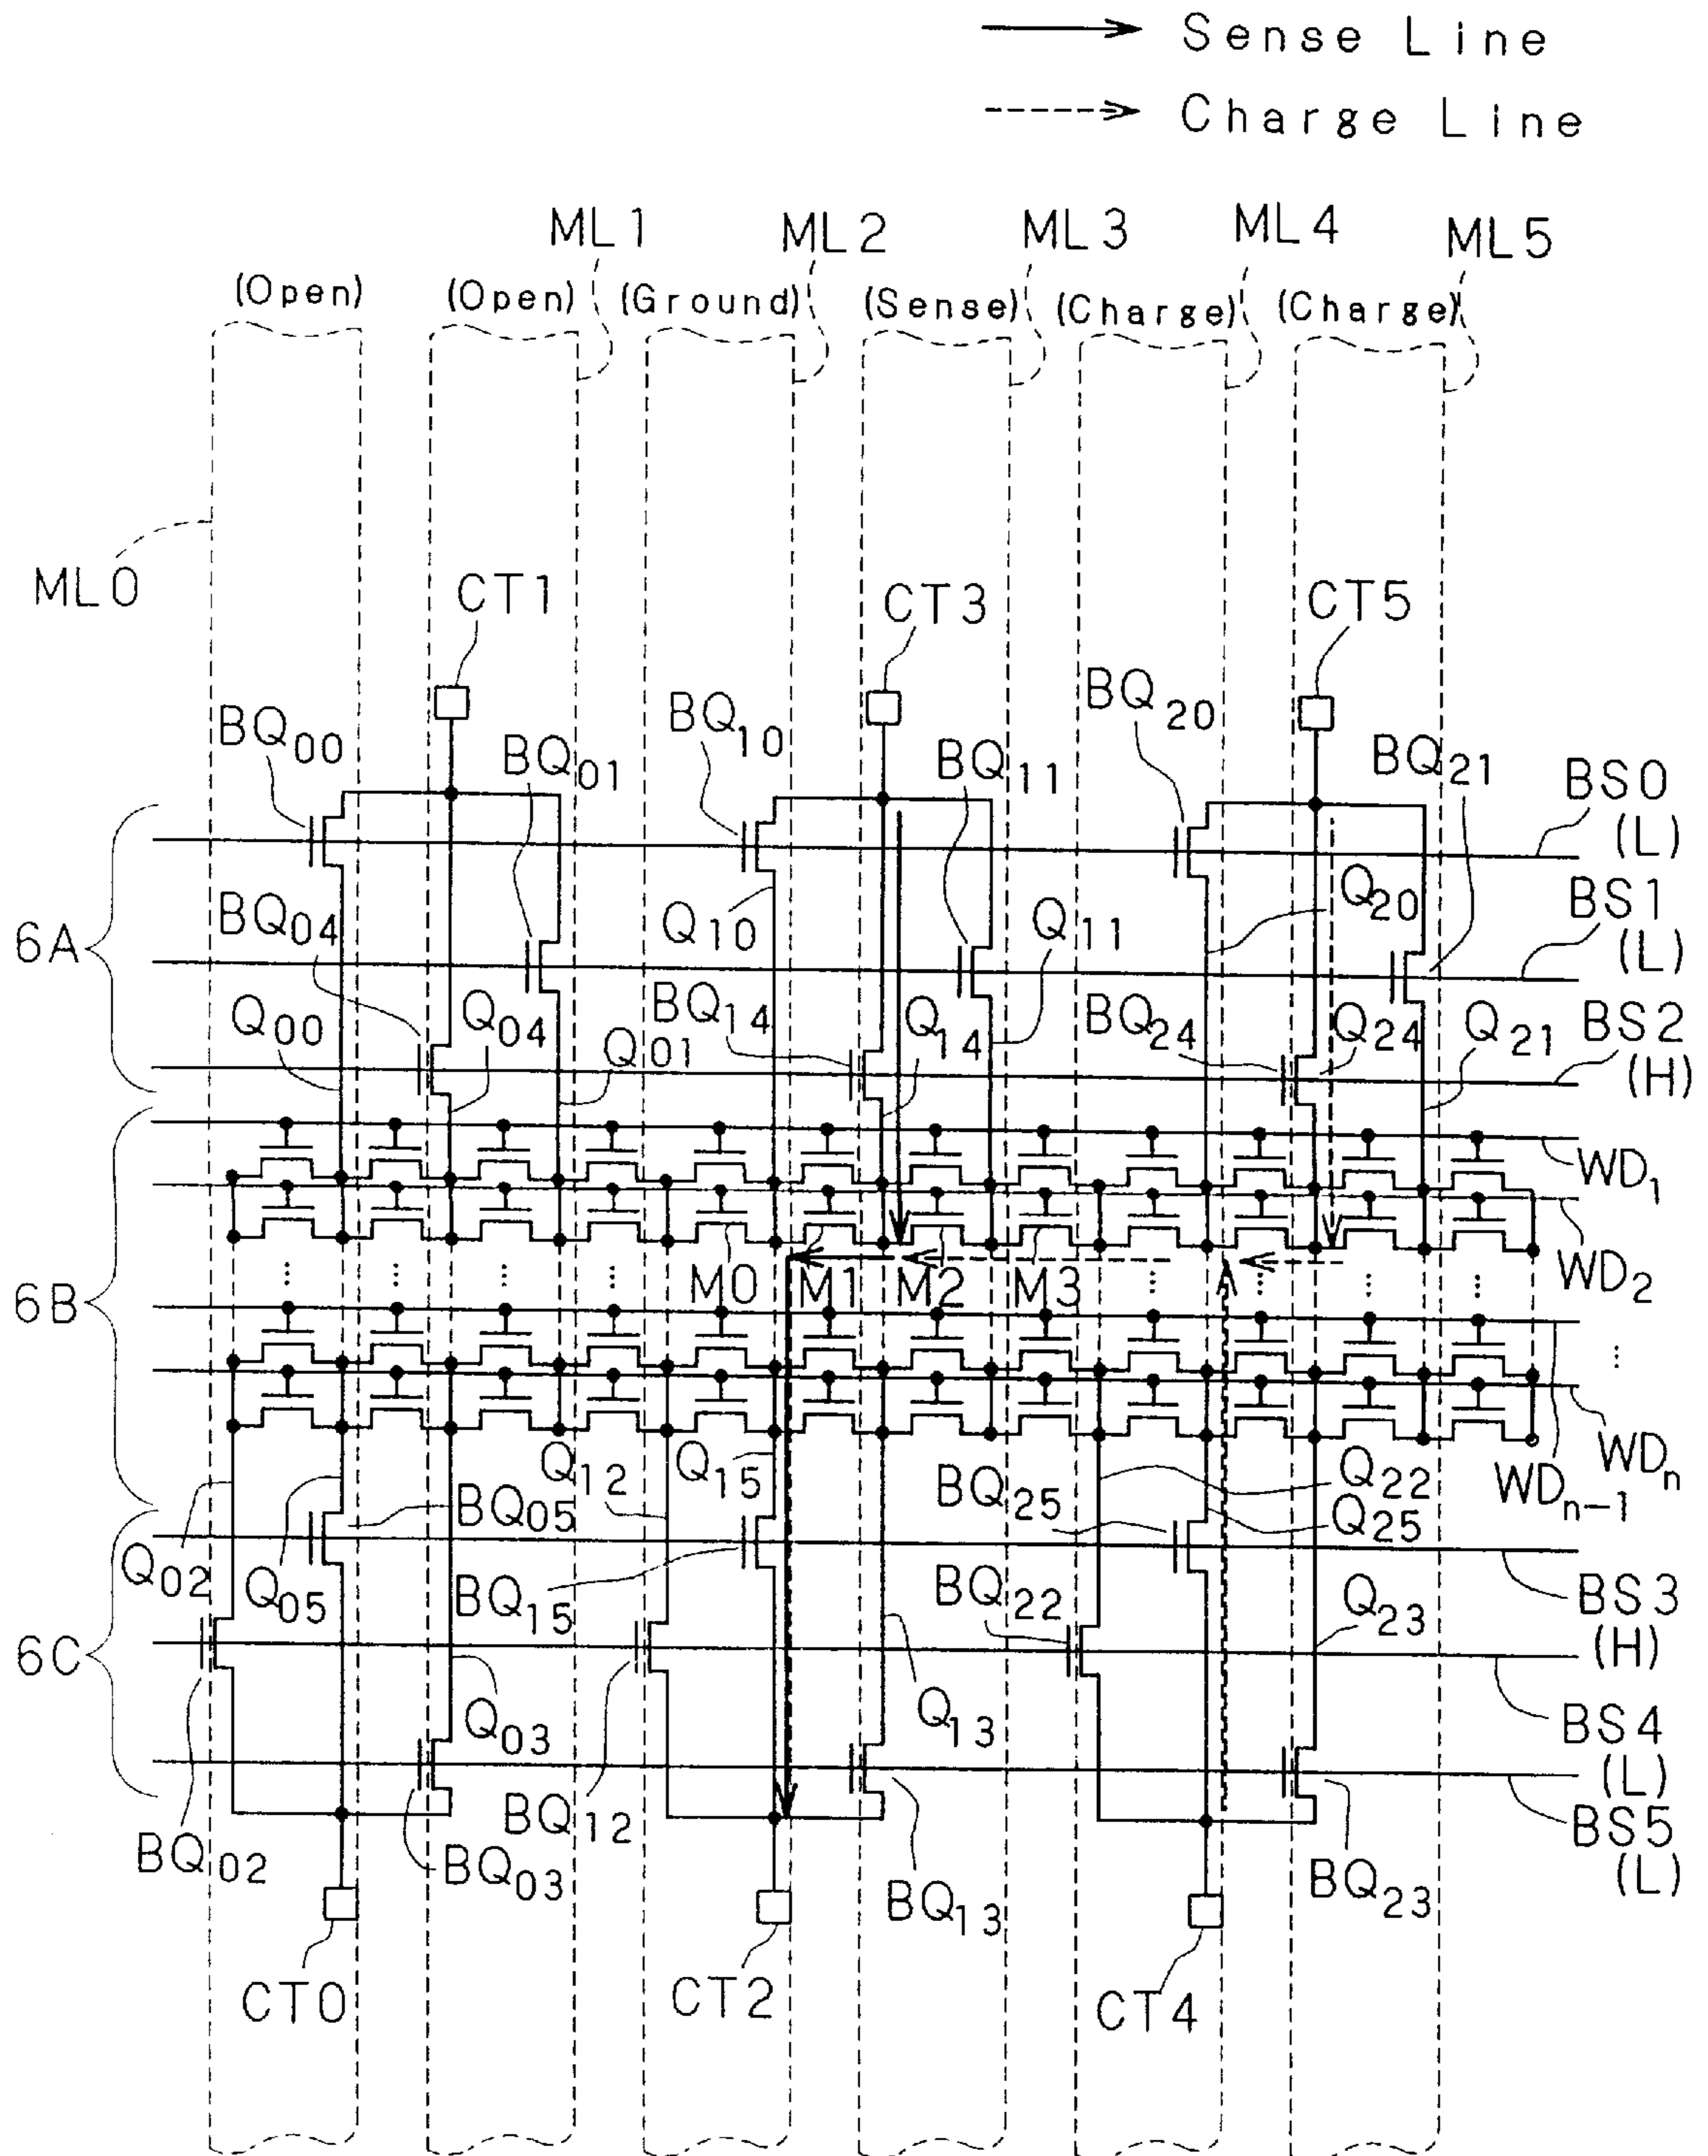 Sense Line
Charge Line
ML1
ML2
ML3
ML4
ML5
(Open)
(Open)
(Ground)
(Sense)
(Charge)
(Charge)
ML0
CT1
CT3
CT5
BQ00
BQ01
BQ10
BQ11
BQ20
BQ21
BS0
(L)
6A
BQ04
Q10
Q11
Q20
BS1
(L)
Q00
Q04
Q01
BQ14
Q14
BQ24
Q24
Q21
BS2
(H)
WD1
6B
M0
M1
M2
M3
WD2
Q12
Q15
BQ25
Q22
Q25
WDn-1
WDn
Q02
Q05
BQ05
BQ15
BQ22
Q23
BS3
(H)
6C
Q03
Q13
BS4
(L)
BQ02
BQ03
BQ12
BQ13
BQ23
BS5
(L)
CT0
CT2
CT4